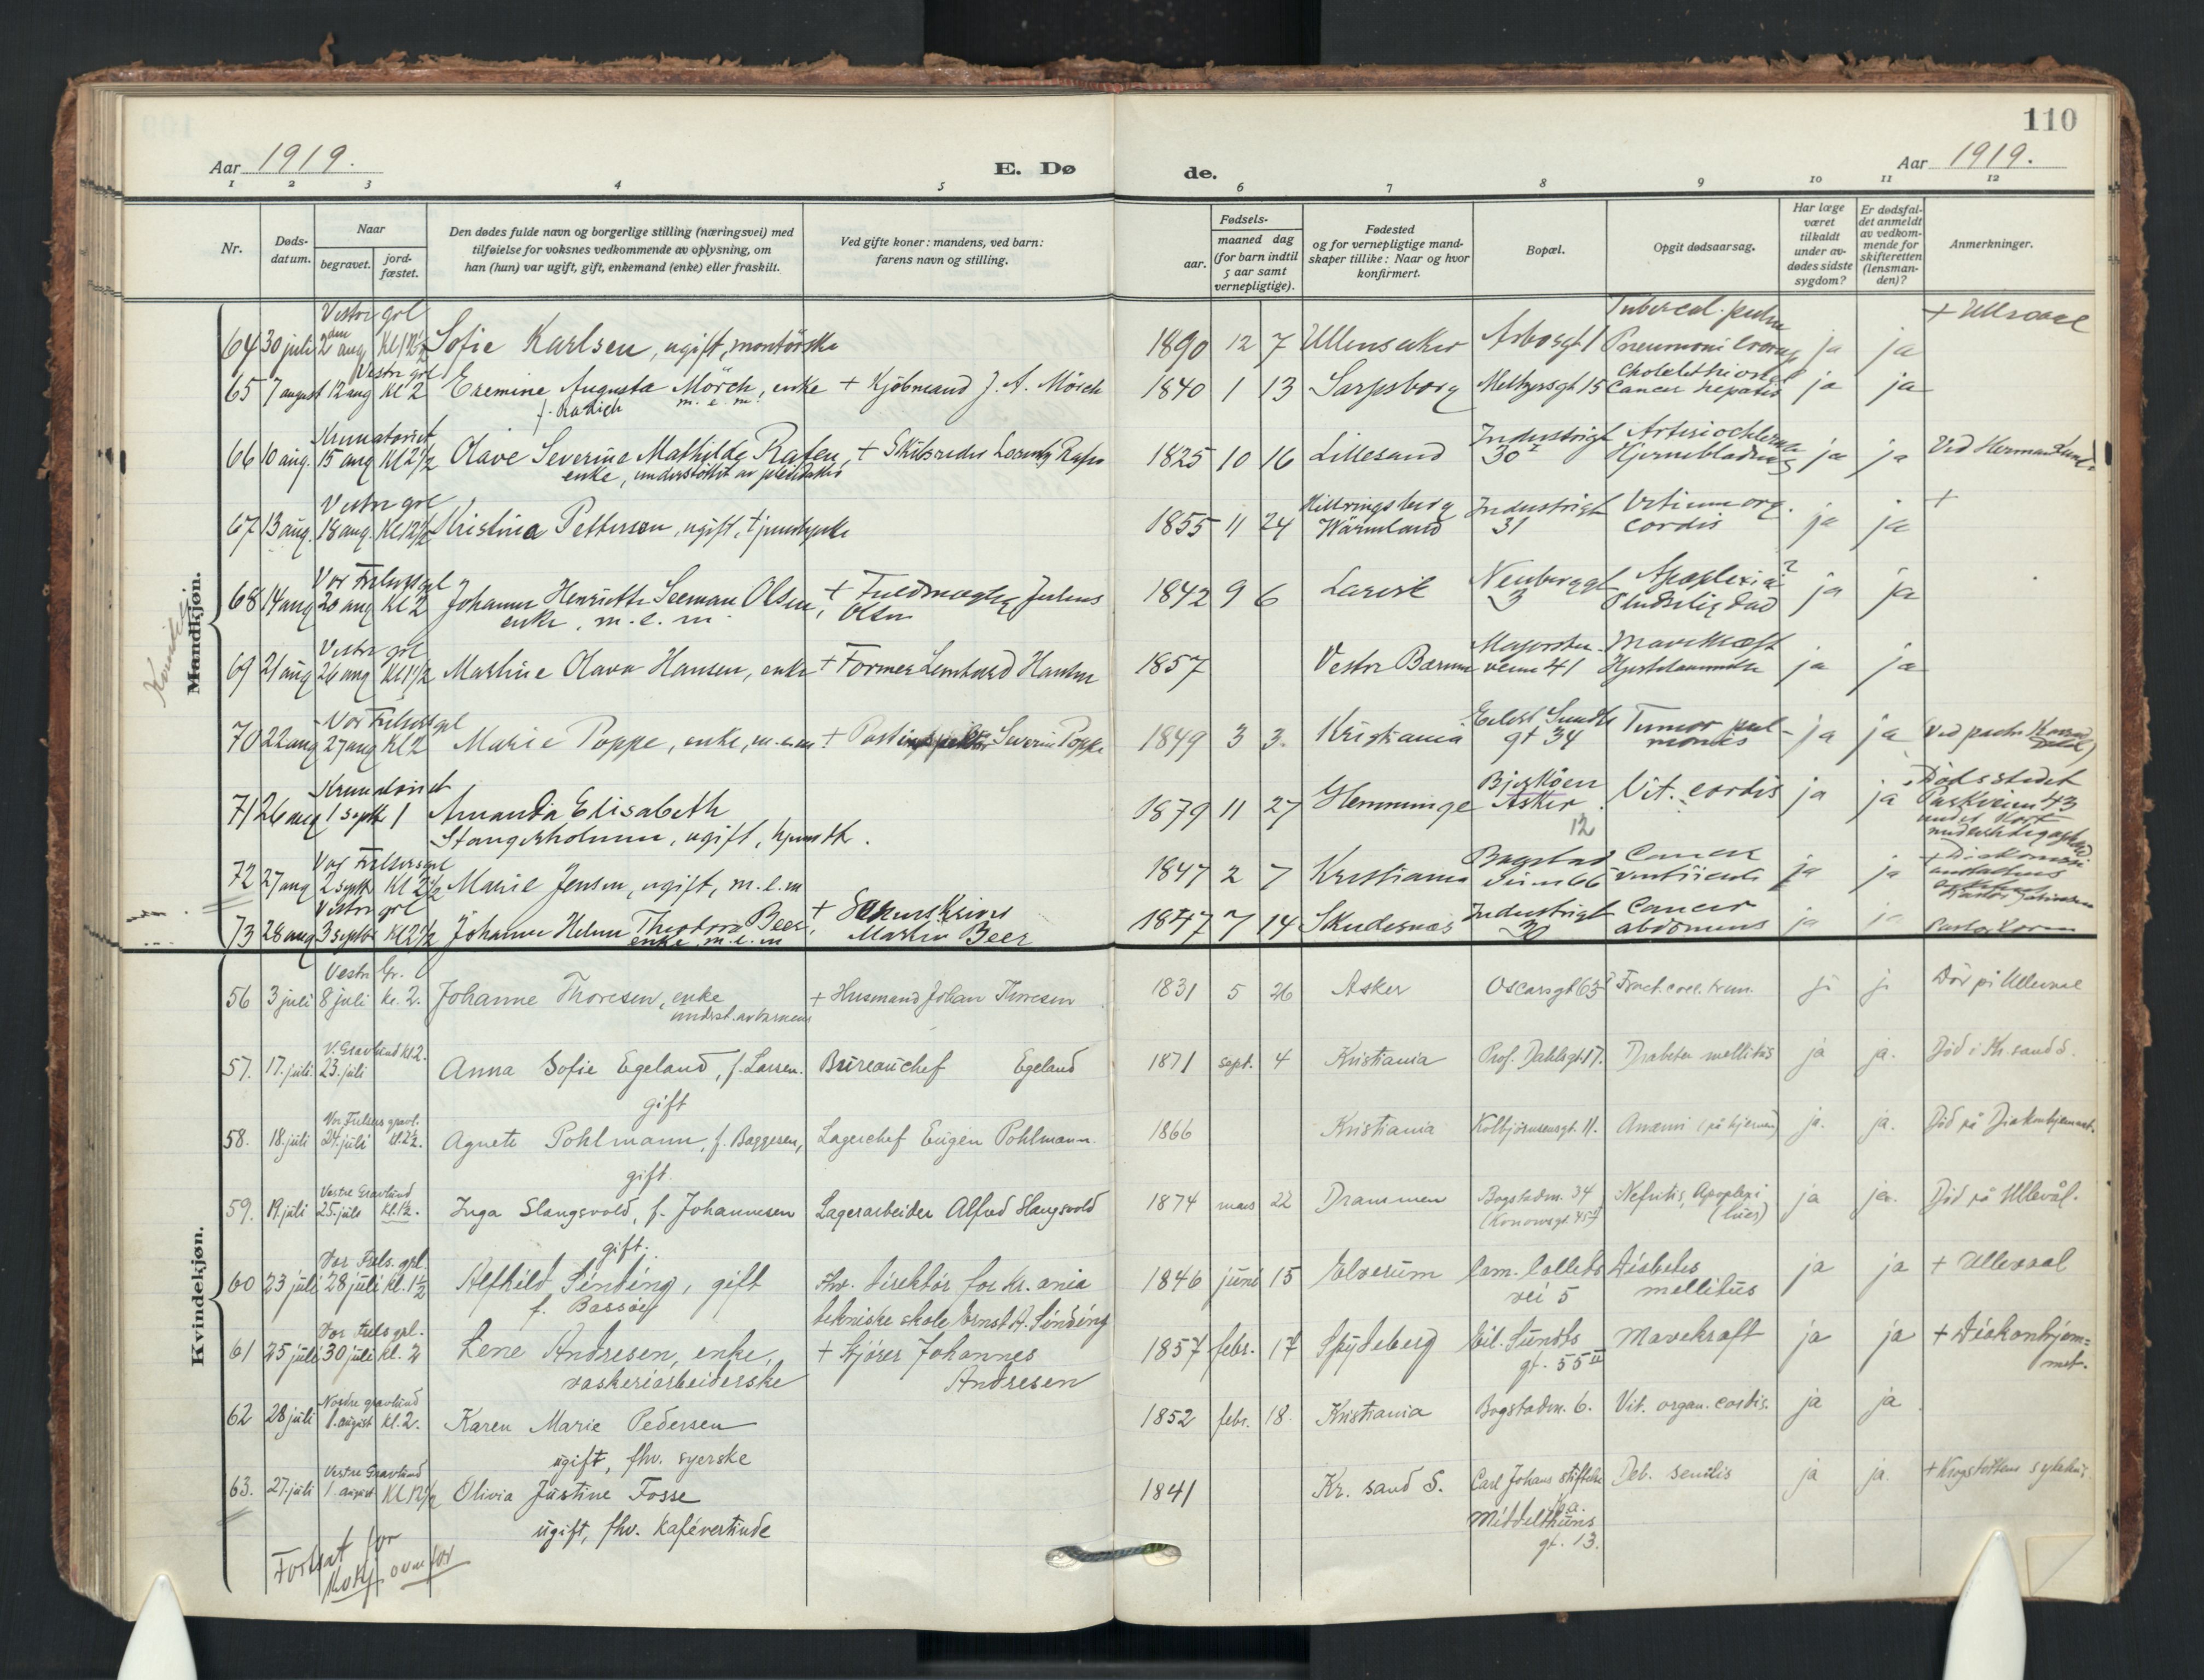 110
Aar 1919.
E. Dø
de.
Aar 1919.
1 2 3 4 5 6 7 8 9 10 11 12
Nr.
Døds-
datum.
Naar
begravet.
jord-
fæstet.
Den dødes fulde navn og borgerlige stilling (næringsvei) med
tilføielse for voksnes vedkommende av oplysning, om
han (hun) var ugift, gift, enkemand (enke) eller fraskilt.
Ved gifte koner: mandens, ved barn:
farens navn og stilling.
Fødsels-
aar.
maaned dag
(for barn indtil
5 aar samt
vernepligtige).
Fødested
og for vernepligtige mand-
skaper tillike: Naar og hvor
konfirmert.
Bopæl.
Opgit dødsaarsag.
Har læge
været
tilkaldt
under av-
dødes sidste
sygdom?
Er dødsfal-
det anmeldt
av vedkom-
mende for
skifteretten
(lensman-
den)?
Anmerkninger.
Mandkjøn.
Vestre grl Tubercul. pulm + Ullevaal
64 30 juli 2den aug Kl 12½ Sofie Karlsen, ugift, montørske 1890 12 7 Ullensaker Arbosgt 1 Pneumoni croup ja ja
Vestre grl
65 7 august 12 aug Kl 2 Eremine Augusta Mörch, enke + Kjöbmand J. A. Mörch 1840 1 13 Sarpsborg Meltzersgt 15 Cancer hepatis ja ja
m. e. m.
Krematoriet Industrigt
66 10 aug. 15 aug Kl 2½ Olave Severine Mathilde Rafen, + Skibsreder Lorentz Rafen 1825 10 16 Lillesand 30 Hjerneblødning ja ja Ved Herman Lunde
enke, understøttet av
Vestre grl Industrigt Vitium org. +
67 13 aug. 18 aug. Kl 12½ Kristina Pettersen, ugift, 1855 11 24 Wärmland 31 cordis ja ja
Vor Frelsersgrl Neubergt Apoplexia ?
68 14 aug 20 aug Kl 2 Johanne Henriette Seeman Olsen, + Fuldmægtig Julius 1842 9 6 Larvik 3 Pludselig død ja ja
enke, m. e. m. Olsen
Vestre grl Majorstu- Mavekræft
69 21 aug 26 aug Kl 1½ Martine Olava Hansen, enke + Former Lenhard Hansen 1857 Vestre Bærum veien 41 ja ja
Vor Frelsersgrl Eilert Sundts Tumor pul-
70 22 aug 27 aug Kl 2 Marie Poppe, enke, m.e.m + Postinspektør Severin Poppe 1849 3 3. Kristiania gt 34 monis ja ja
Krematoriet Dødsstedet
71 26 aug 1 septb 1 Amanda Elisabeth 1879 11 27 Hemminge Asker Vit. cordis ja ja Parkveien 43
Stangerholmen, ugift, 12
Vor Frelsersgrl Bogstad Cancer
72 27 aug 2 septb Kl 2½ Marie Jensen, ugift, m.e.m 1847 2 7 Kristiania veien 66 ventriculi ja ja
Vestre grl Industrigt Cancer
73 28 aug 3 septb Kl 2½ Johanne Helene Theodora Beer, + 1847 7 14 Skudesnæs 30 abdomens ja ja
enke m. e. m Martin Beer
Kvindekjøn.
Vestre Gr.
56 3 juli 8 juli kl. 2. Johanne Thoresen, enke + Husmand Johan Thoresen 1831 5 26 Asker Oscarsgt 63 Fract. coll. fem. ja ja Dör på Ullevaal
underst. av barnene
V. Gravlund kl 2.
57. 17. juli 23. juli Anna Sofie Egeland, f. Larsen. Bureauchef Egeland 1871 sept. 4 Kristiania Prof. Dahlsgt. 17. Diabetes mellitus ja ja. Död i Kr.sand S.
gift
Vor Frelsers gravl.
58. 18. juli 24. juli kl. 2½. Agnete Pohlmann, f. Baggesen, Lagerchef Eugen Pohlmann. 1866 Kristiania Kolbjörnsensgt. 11. Anæmi (på hjernen) ja. ja. Död på Diakonhjemmet.
gift.
Vestre Gravlund
59. 19. juli 25. juli kl. 1½. Inga Slangsvold, f. Johannesen Lagerarbeider Alfred Slangsvold 1874 mars 22 Drammen Bogstadv. 34 Nefritis, Apoplexi ja ja. Död på Ullevål.
gift. (lues)
Vor Frels. grl.
60 23 juli 28 juli kl. 1½ Alfhild Sinding, gift Fhv. direktör for Kr.ania 1846 juni 15 Elverum Cam. Colletts Diabetes ja ja + Ullevaal
f. Bassöe tekniske skole Ernst A. Sinding vei 5 mellitus
Vor Frels grl.
61 25 juli 30 juli kl. 2 Lene Andresen, enke, + Kjörer Johannes 1857 febr. 17 Spydeberg Eil. Sundts Mavekræft ja ja + Diakonhjem-
vaskeriarbeiderske Andresen gt. 55 II met.
Nordre gravlund
62 28 juli 1. august kl. 2. Karen Marie Pedersen 1852 febr. 18. Kristiania Bogstadv. 6. Vit. organ. cordis. ja ja
ugift, fhv. syerske
Vestre Gravlund
63. 27. juli 1. august Kl 12½ Olivia Justine Fosse 1841 Kr. sand S. Carl Johans stiftelse Deb. senilis ja ja. + Krogstöttens sykehus.
ugift, fhv. kaféværtinde Middelthuns
gt. 13.
Fortsat for
ovenfor